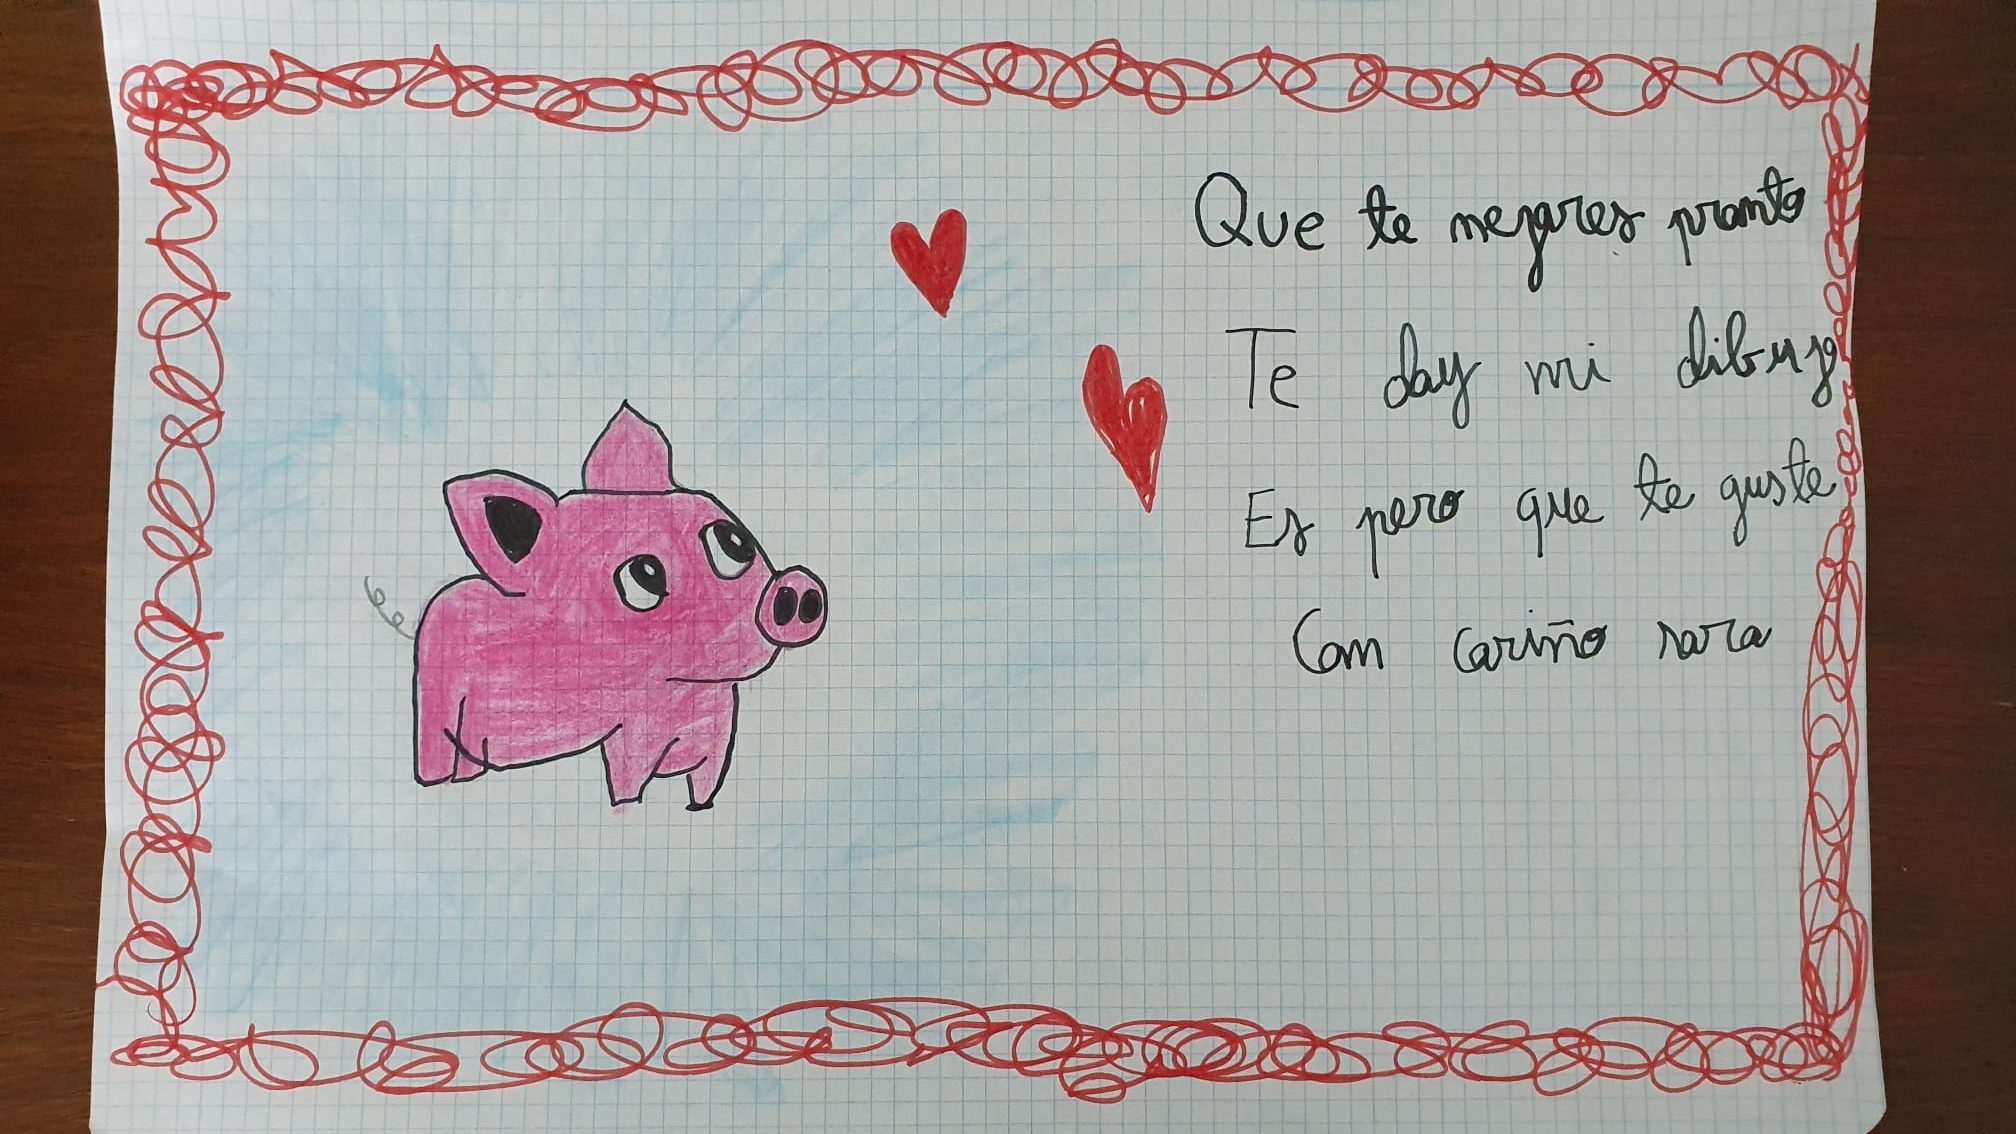 Que te mejores pronto
Te doy mi dibujo
Es pero que te guste
Con cariño sara